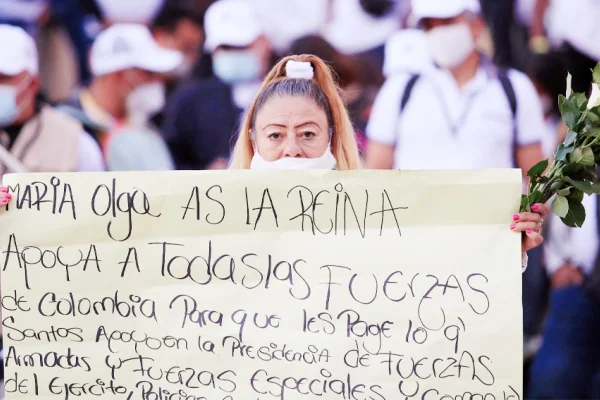 MARIA Olga AS LA REINA
Apoya A Todas las FUERZAS
de Colombia Para que les Page lo q'
Santos Apoyo en la Presidencia de FUERZAS
Armadas y FUERZAS Especiales y
del Ejercito, Policias